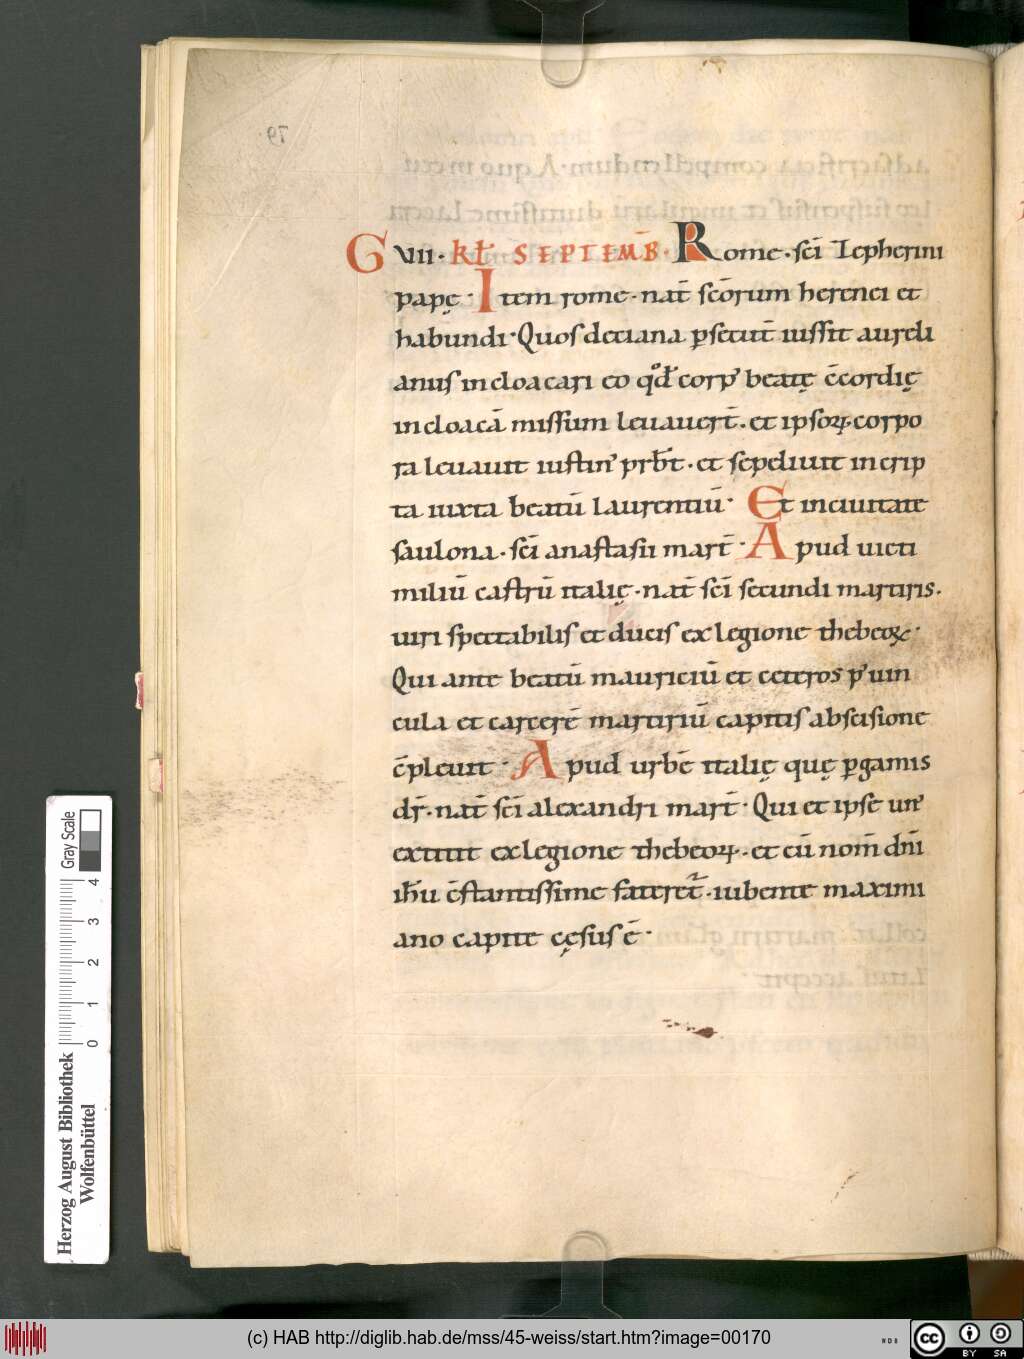 79
G VII · kł SEPTEMB̄ · Rome · sc̄i Zepherini
papę · Item rome · nat̄ sc̄orum herenei et
habundi · Quos deciana p̲secut̄ iussit aureli
anus in cloacari eo qd̄ corp' beatę c̄cordię
in cloacā missum leuauert̄ · et ipsoꝝ corpo
ra leuauit iustin' prb̄t · et sepeliuit in crip
ta iuxta beatū laurentiū · Et in ciuitate
saulona · sc̄i anastasii mart̄ · Apud uicti
miliū castrū italię · nat̄ sc̄i secundi martiris ·
uiri spectabilis et ducis ex legione thebeoꝝ ·
Qui ante beatū mauriciū et ceteros p' uin
cula et carcerē martiriū capitis abscisione
c̄pleuit · Apud urbē italię quę ꝑgamis
dr̄ · nat̄ sc̄i alexandri mart̄ · Qui et ipse un'
extitit ex legione thebeoꝝ · et cū nom̄ dn̄i
ih̄u c̄stantissime fateret̄ · iubente maximi
ano capite cęsus ē ·
Herzog August Bibliothek
Wolfenbüttel
0 1 2 3 4
Gray Scale
(c) HAB http://diglib.hab.de/mss/45-weiss/start.htm?image=00170
WDB
cc BY SA